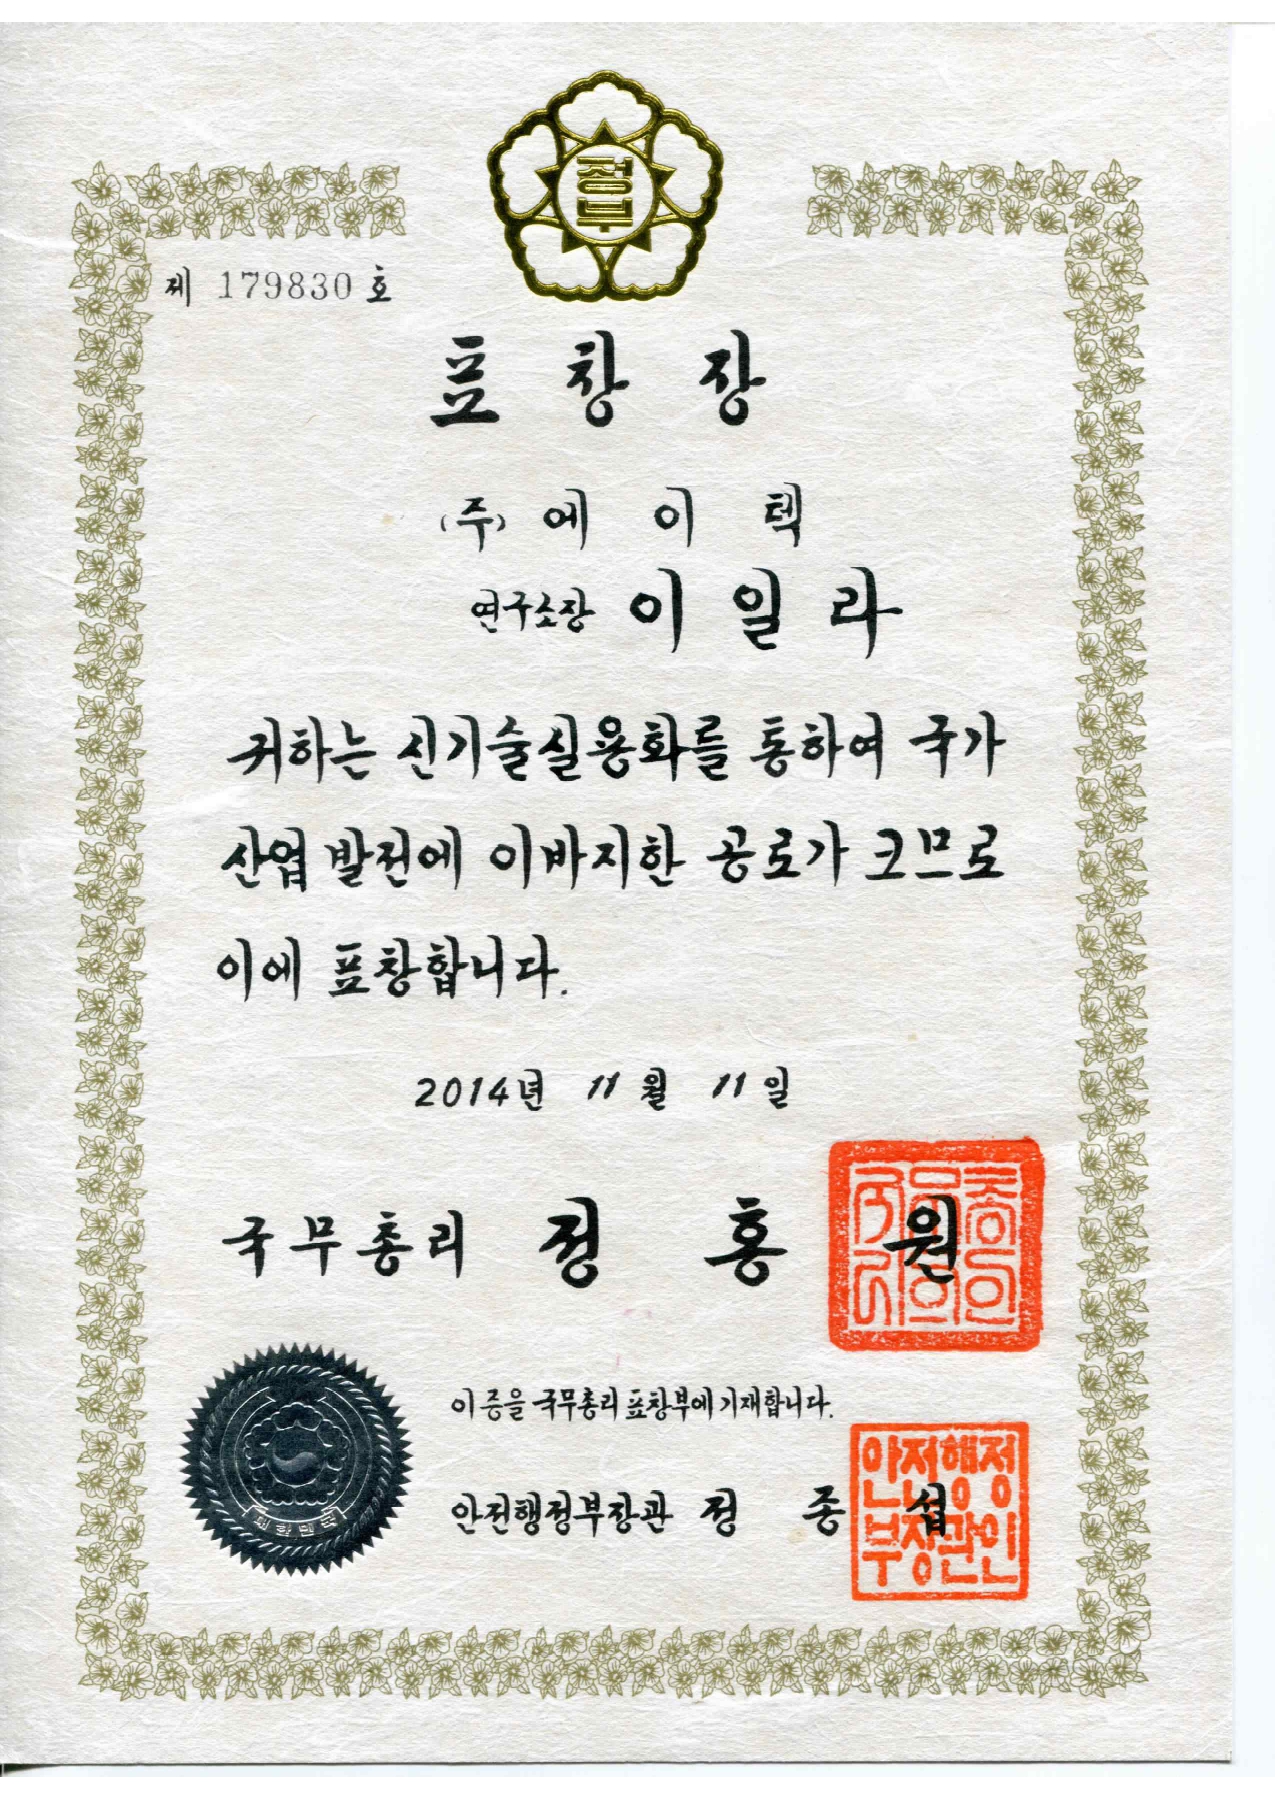 정부
제 179830 호
표창장
(주) 에이텍
연구소장 이일라
귀하는 신기술실용화를 통하여 국가
산업 발전에 이바지한 공로가 크므로
이에 표창합니다.
2014년 11월 11일
국무총리 정홍원
국무총리의인
이 증을 국무총리 표창부에 기재합니다.
안전행정부장관 정종섭
안전행정
부장관인
대한민국